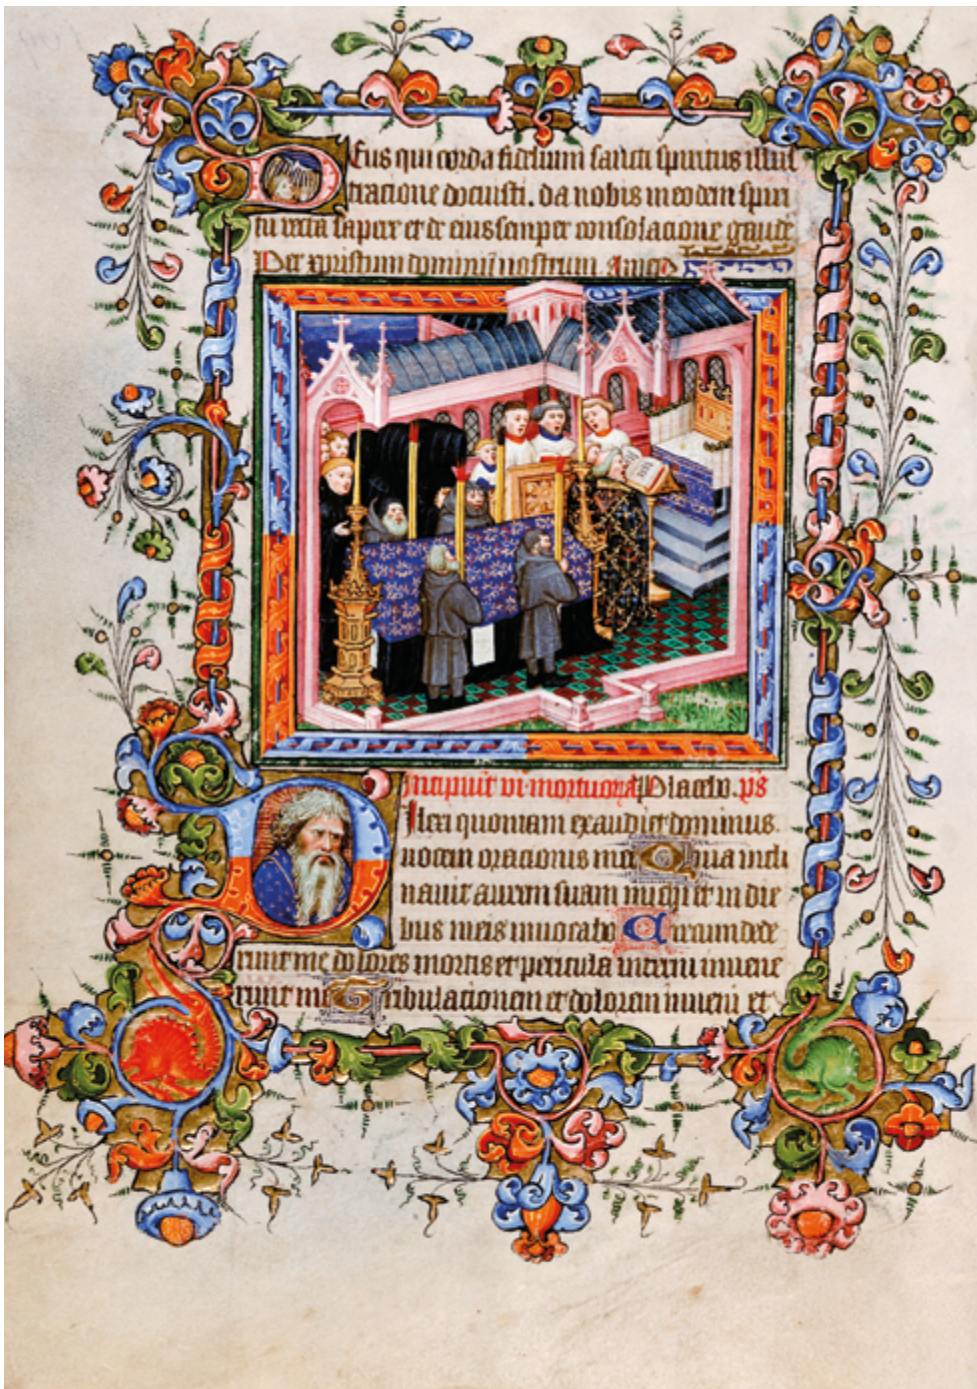 Deus qui corda fidelium sancti spiritus illus
tracione docuisti. da nobis in eodem spiri
tu recta sapere et de eius semper consolacione gaude
Per xpistum dominum nostrum Amen
Incipiunt vi· mortuorum Placebo. ps
Dilexi quoniam exaudiet dominus.
vocem oracionis mee Quia incli
navit aurem suam michi et in die
bus meis invocabo Circumdede
runt me dolores mortis et pericula inferni invene
runt me Tribulacionem et dolorem inveni et